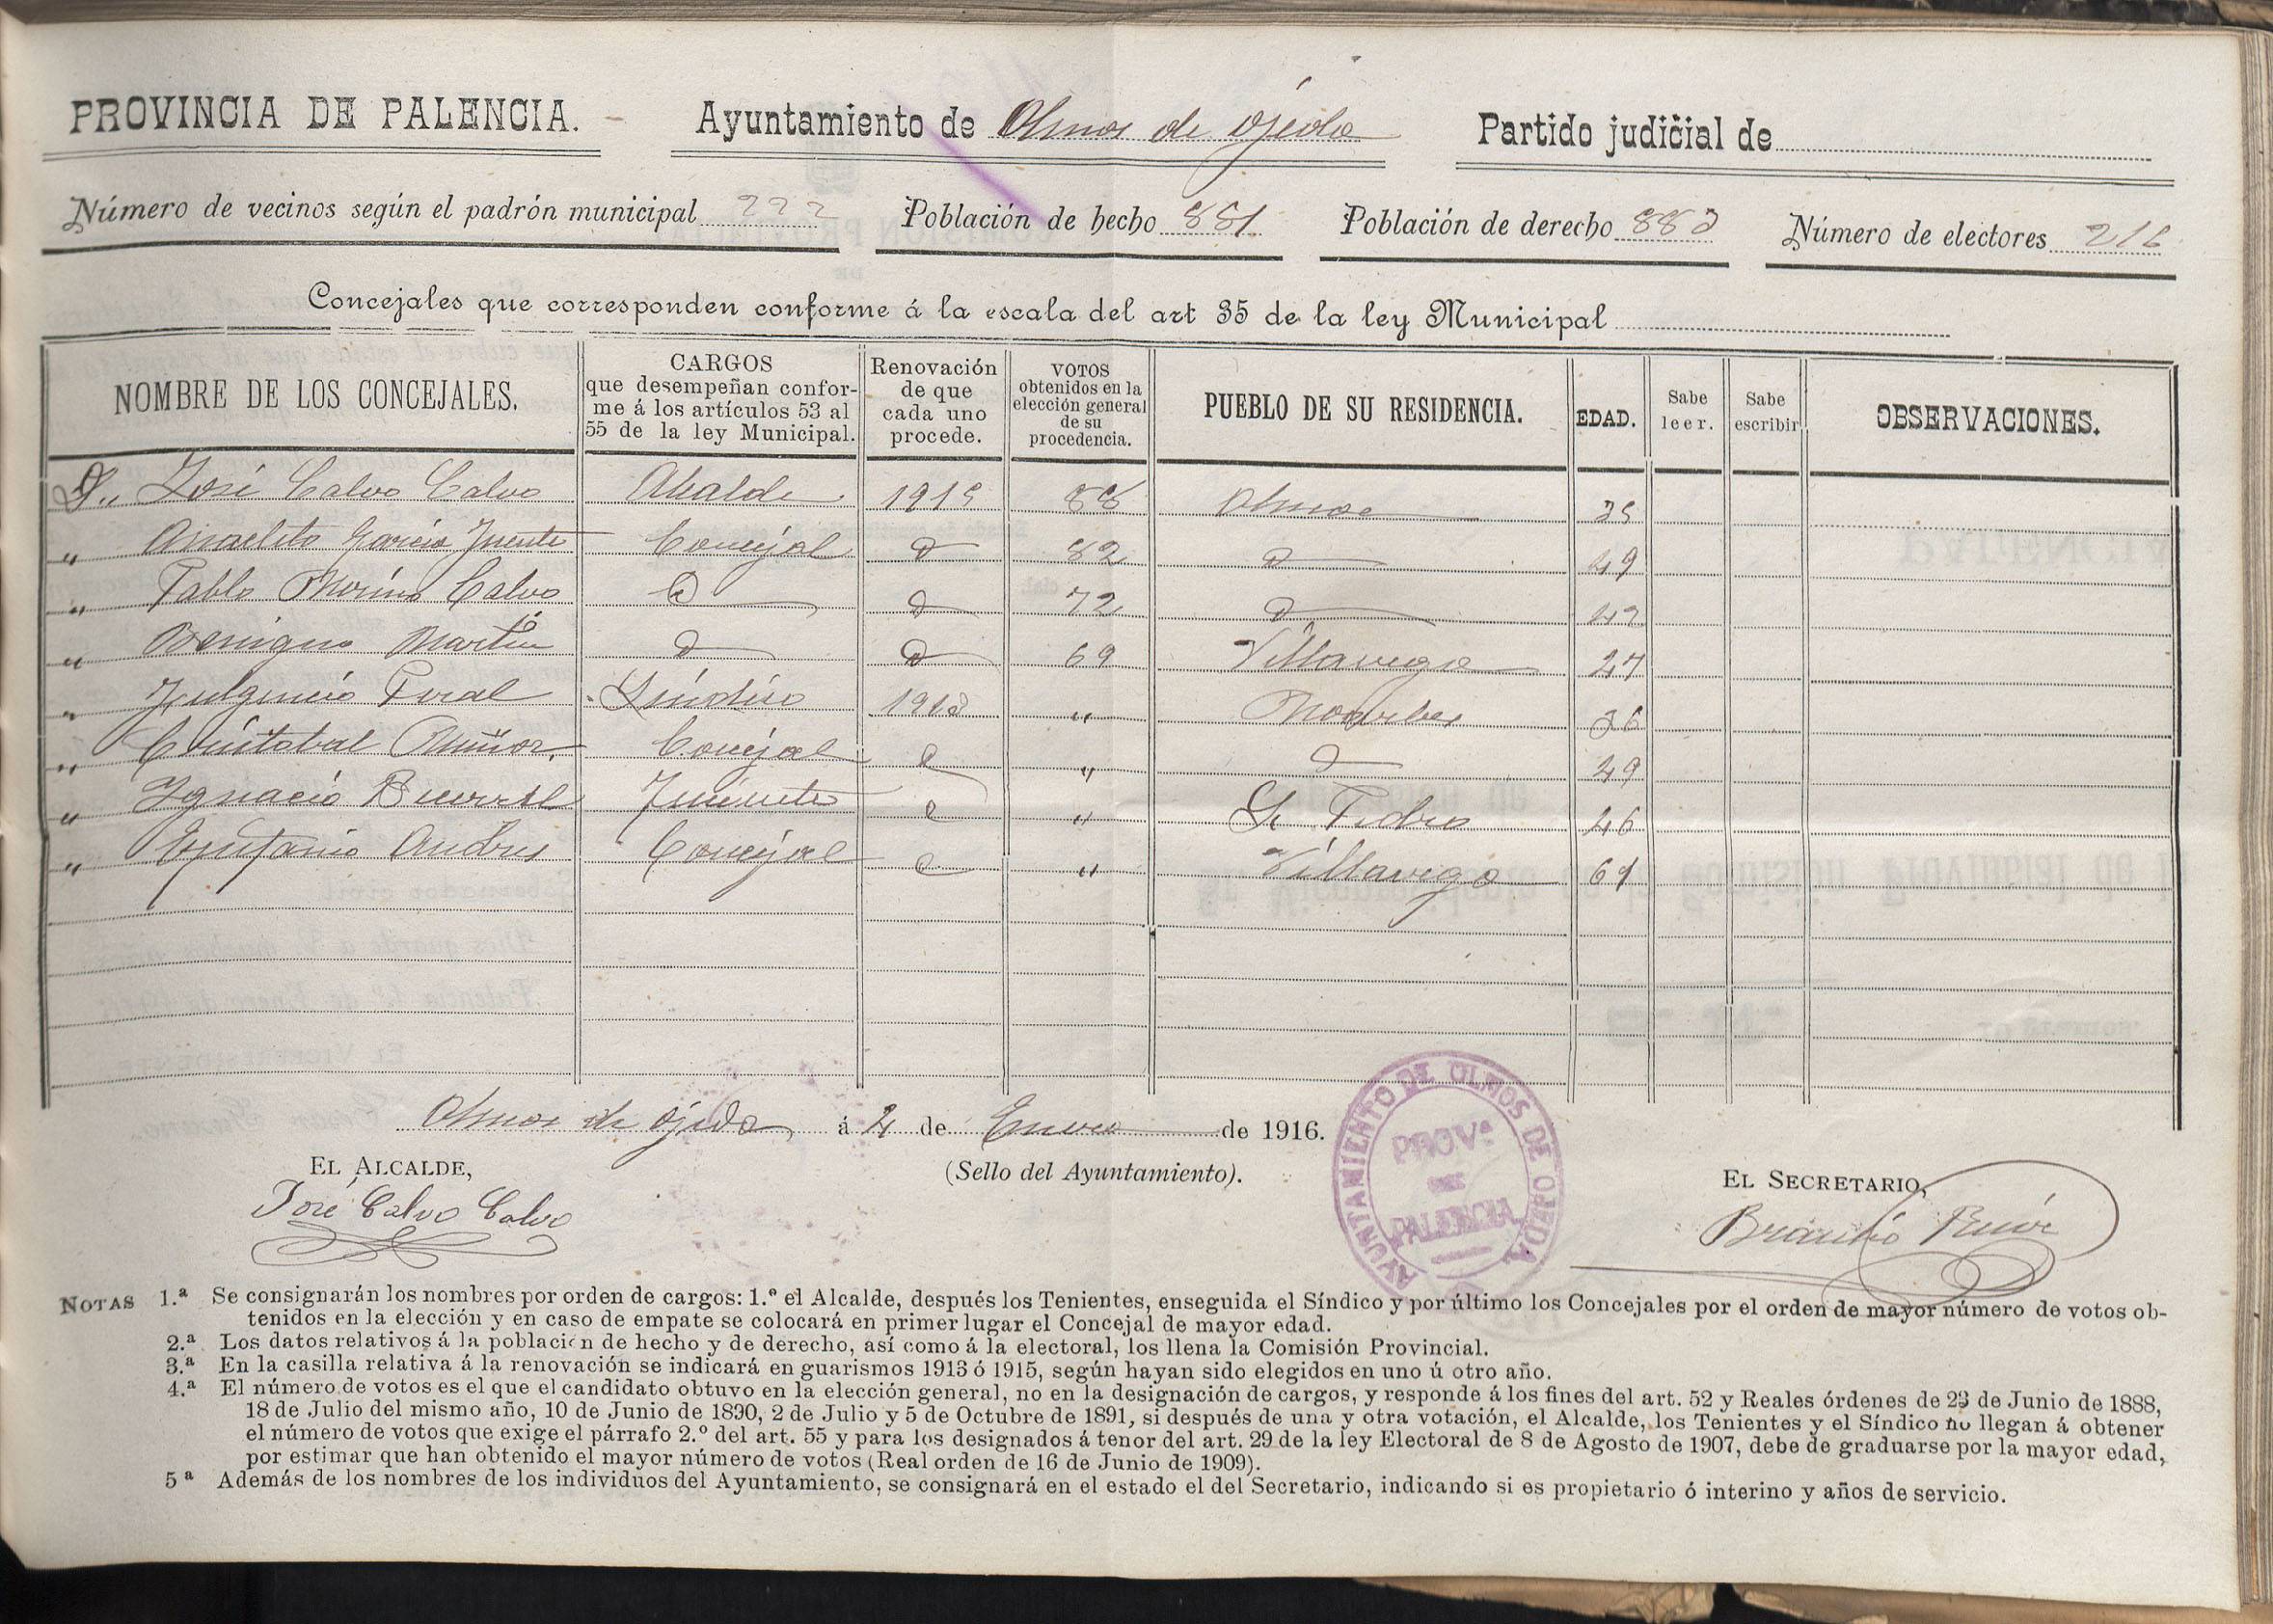 PROVINCIA DE PALENCIA. Ayuntamiento de Olmos de Ojeda Partido judicial de
Número de vecinos según el padrón municipal 222 Población de hecho 881 Población de derecho 882 Número de electores 216
Concejales que corresponden conforme á la escala del art 35 de la ley Municipal
NOMBRE DE LOS CONCEJALES. CARGOS que desempeñan conforme á los artículos 53 al 55 de la ley Municipal. Renovación de que cada uno procede. VOTOS obtenidos en la elección general de su procedencia. PUEBLO DE SU RESIDENCIA. EDAD. Sabe leer. Sabe escribir OBSERVACIONES.
D. José Calvo Calvo Alcalde 1915 88 Olmos 35
" Anacleto García Fuente Concejal D 82 D 49
" Pablo Merino Calvo D D 72 D 42
" Benigno Martín D D 69 Villavega 27
" Fulgencio Peral Síndico 1913 " Moarbes 36
" Cristobal Muñoz Concejal " D 49
" Ignacio Teniente " Sn Pedro 46
" Epifanio Andres Concejal " Villavega 61
Olmos de Ojeda, á 2 de Enero de 1916.
EL ALCALDE, (Sello del Ayuntamiento). EL SECRETARIO,
José Calvo Calvo Braulio
AYUNTAMIENTO DE OLMOS DE OJEDA
PROVª
DE
PALENCIA
NOTAS 1.ª Se consignarán los nombres por orden de cargos: 1.º el Alcalde, después los Tenientes, enseguida el Síndico y por último los Concejales por el orden de mayor número de votos ob-
tenidos en la elección y en caso de empate se colocará en primer lugar el Concejal de mayor edad.
2.ª Los datos relativos á la población de hecho y de derecho, así como á la electoral, los llena la Comisión Provincial.
3.ª En la casilla relativa á la renovación se indicará en guarismos 1913 ó 1915, según hayan sido elegidos en uno ú otro año.
4.ª El número de votos es el que el candidato obtuvo en la elección general, no en la designación de cargos, y responde á los fines del art. 52 y Reales órdenes de 23 de Junio de 1888,
18 de Julio del mismo año, 10 de Junio de 1890, 2 de Julio y 5 de Octubre de 1891, si después de una y otra votación, el Alcalde, los Tenientes y el Síndico no llegan á obtener
el número de votos que exige el párrafo 2.º del art. 55 y para los designados á tenor del art. 29 de la ley Electoral de 8 de Agosto de 1907, debe de graduarse por la mayor edad,
por estimar que han obtenido el mayor número de votos (Real orden de 16 de Junio de 1909).
5ª Además de los nombres de los individuos del Ayuntamiento, se consignará en el estado el del Secretario, indicando si es propietario ó interino y años de servicio.